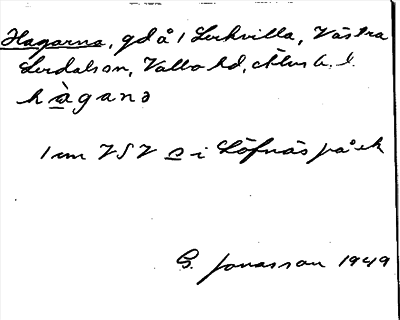 Hagarna, gd å 1 Lockvilla, Västra
Lerdalson, Valbo hd, Älvsb. l.
hàganə
1 cm VSV o i Löfnäs på ek
G. Jonasson 1949